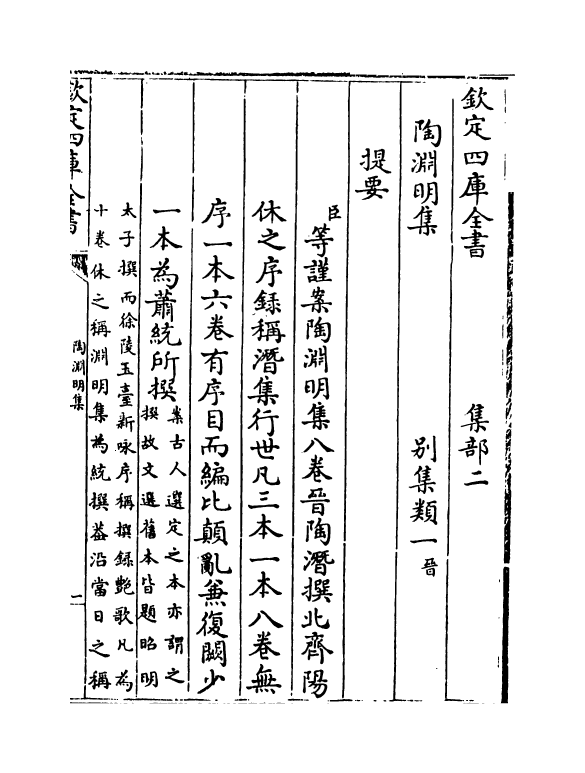 欽定四庫全書　集部二
陶淵明集　別集類一晉
提要
臣等謹案陶淵明集八卷晉陶潛撰北齊陽
休之序錄稱潛集行世凡三本一本八卷無
序一本六卷有序目而編比顛亂兼復闕少
一本為蕭統所撰案古人選定之本亦謂之
撰故文選舊本皆題昭明
太子撰而徐陵玉臺新咏序稱撰録艶歌凡為
十卷休之稱淵明集為統撰葢沿當日之稱
欽定四庫全書
陶淵明集